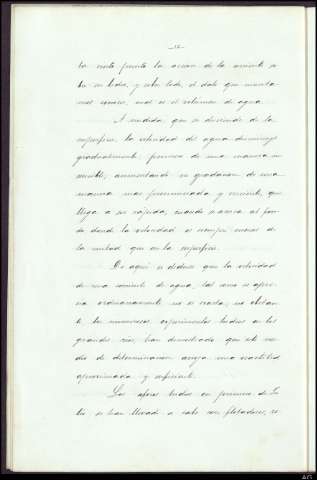 ta cuta punto la accion de la corriente so
bre su lecho, y sobre todo, el dato que mas inte
resa conocer, cual es el volumen de agua.
A medida que se desciende de la
superficie, la velocidad del agua disminuye
gradualmente, primero de una manera in
sensible, aumentando su gradacion de una
manera mas pronunciada y creciente, que
llega a ser rápida, cuando se acerca al fon
do donde la velocidad es siempre menos de
la mitad que en la superficie.
De aqui se deduce que la velocidad
de una corriente de agua, tal como se apre
cia ordinariamente no es exacta; no obstan
te los numerosos experimentos hechos en los
grandes rios, han demostrado que este me
dio de determinacion arroja una exactitud
aproximada y suficiente.
Los aforos hechos en primeros de Ju
lio, se han llevado a cabo con flotadores, se